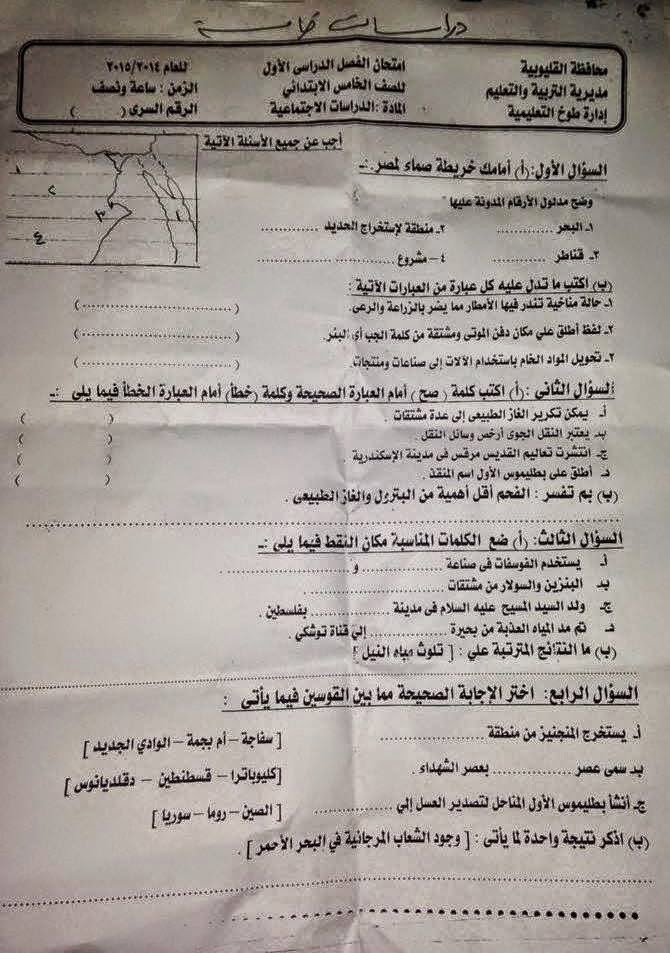 دراسات خامسة
محافظة القليوبية امتحان الفصل الدراسى الأول للعام ٢٠١٥/٢٠١٤
مديرية التربية والتعليم للصف الخامس الابتدائي الزمن : ساعة ونصف
إدارة طوخ التعليمية المادة :الدراسات الاجتماعية الرقم السرى ( )
أجب عن جميع الأسئلة الآتية
السؤال الأول:(أ) أمامك خريطة صماء لمصر :ـ
وضح مدلول الأرقام المدونة عليها
١ـ البحر ............ ٢ـ منطقة لإستخراج الحديد ............
٣ـ قناطر ............ ٤ – مشروع ............
١
٢
٣
٤
١
(ب) اكتب ما تدل عليه كل عبارة من العبارات الآتية :
١ـ حالة مناخية تندر فيها الأمطار مما يضر بالزراعة والرعى. (............)
٢ـ لفظ أطلق علي مكان دفن الموتى ومشتقة من كلمة الجب أى البئر. (............)
٣ـ تحويل المواد الخام باستخدام الآلات إلى صناعات ومنتجات. (............)
السؤال الثانى :(أ) اكتب كلمة ( صح ) أمام العبارة الصحيحة وكلمة (خطأ) أمام العبارة الخطأ فيما يلى :ـ
أـ يمكن تكرير الغاز الطبيعى إلى عدة مشتقات . ( )
بـ يعتبر النقل الجوى أرخص وسائل النقل. ( )
جـ انتشرت تعاليم القديس مرقس فى مدينة الإسكندرية . ( )
دـ أطلق على بطليموس الأول اسم المنقذ . ( )
(ب) بم تفسر : الفحم أقل أهمية من البترول والغاز الطبيعى .
السؤال الثالث: (أ) ضع الكلمات المناسبة مكان النقط فيما يلى :ـ
أـ يستخدم الفوسفات فى صناعة ............ و ............
بـ البنزين والسولار من مشتقات ............
جـ ولد السيد المسيح عليه السلام فى مدينة ............ بفلسطين .
دـ تم مد المياه العذبة من بحيرة ............ إلى قناة توشكي .
(ب) ما النتائج المترتبة علي : [ تلوث مياه النيل ]
السؤال الرابع: اختر الإجابة الصحيحة مما بين القوسين فيما يأتى :
أـ يستخرج المنجنيز من منطقة ............ [ سفاجة – أم بجمة – الوادي الجديد ]
بـ سمى عصر ............ بعصر الشهداء . [كليوباترا – قسطنطين – دقلديانوس ]
جـ أنشأ بطليموس الأول المناحل لتصدير العسل إلي ............ [ الصين – روما – سوريا ]
(ب) اذكر نتيجة واحدة لما يأتى : [ وجود الشعاب المرجانية في البحر الأحمر ] .